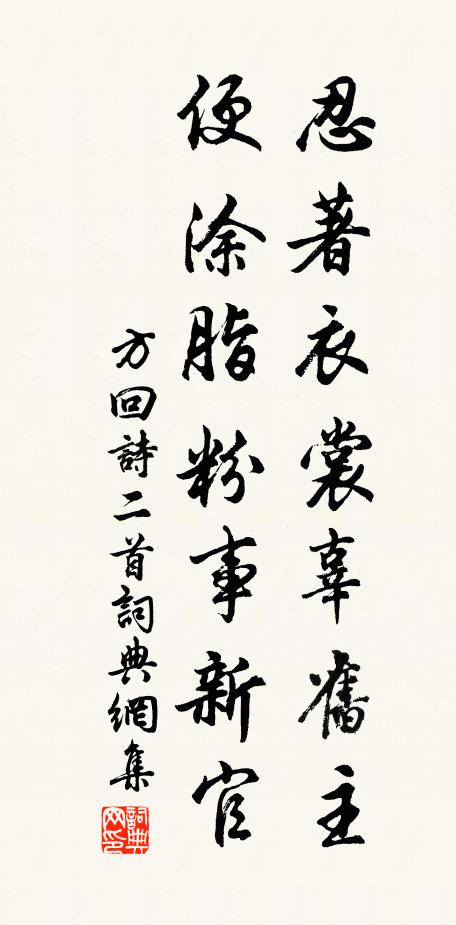 忍著衣裳辜舊主
便涂脂粉事新官
方回詩二首詞典網集
詞典网印